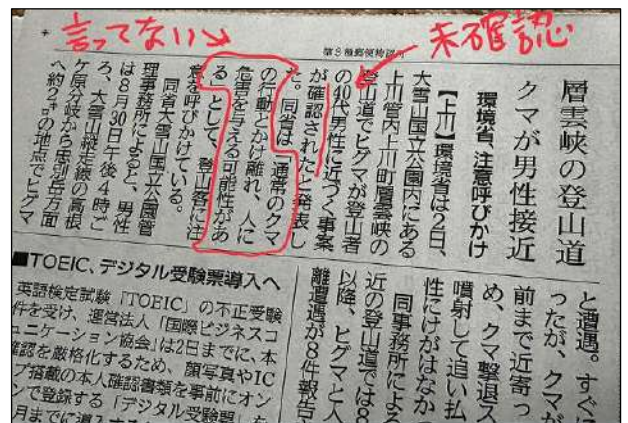 言ってない
未確認
第3種郵便物認可
層雲峡の登山道
クマが男性接近
環境省、注意呼びかけ
【上川】環境省は2日、
大雪山国立公園内にある
上川管内上川町層雲峡の
登山道でヒグマが登山者
の40代男性に近づく事案
が確認されたと発表し
た。同省は「通常のクマ
の行動とかけ離れ、人に
危害を与える可能性があ
る」として、登山客に注
意を呼びかけている。
同省大雪山国立公園管
理事務所によると、男性
は8月30日午後4時ご
ろ、大雪山縦走線の高根
ケ原分岐から忠別岳方面
へ約2㌔の地点でヒグマ
と遭遇。すぐに
ったが、クマが
前まで近寄っ
め、クマ撃退ス
噴射して追い払
性にけがはなか
同事務所による
近の登山道では8
以降、ヒグマと人
離遭遇が8件報告
■TOEIC、デジタル受験票導入へ
英語検定試験「TOEIC」の不正受験
件を受け、運営法人「国際ビジネスコ
ュニケーション協会」は2日までに、本
確認を厳格化するため、顔写真やIC
プ搭載の本人確認書類を事前にオン
ンで登録する「デジタル受験票」を
月までに導入する